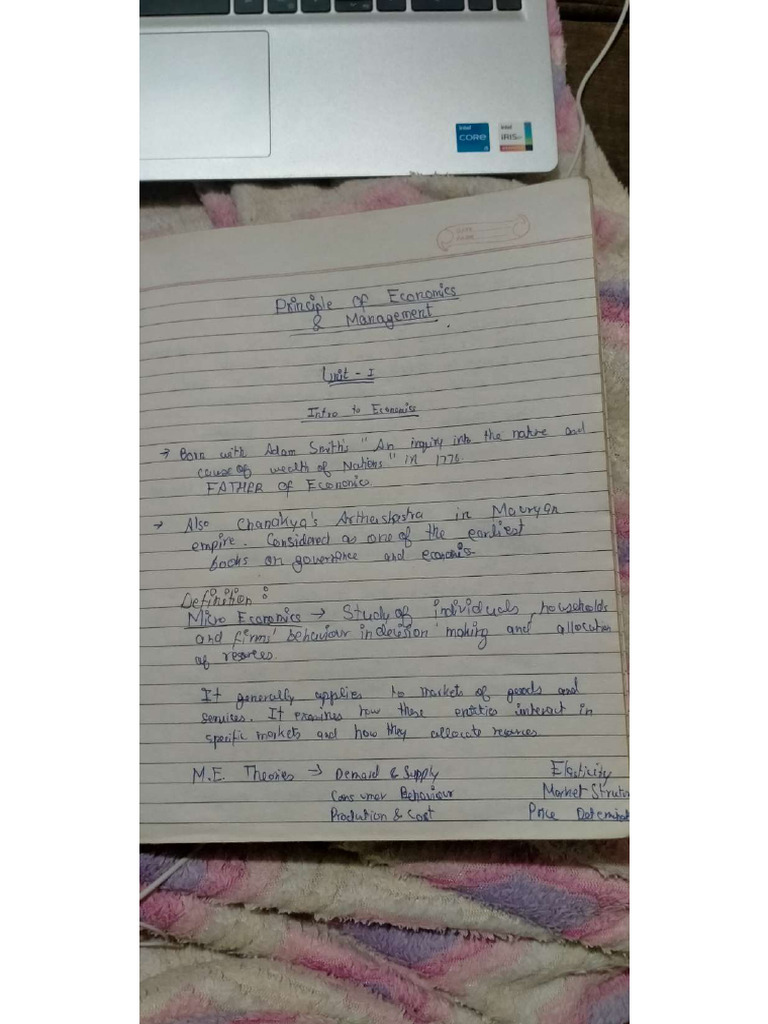 intel
CORE
i5
intel
iRIS xe
DATE
PAGE
Principle of Economics
& Management
Unit - I
Intro to Economics
→ Born with Adam Smith's "An inquiry into the nature and
cause of wealth of Nations" in 1776.
FATHER of Economics.
→ Also Chanakya's Arthashastra in Mauryan
empire. Considered as one of the earliest
books on governance and economics
Definition :
Micro Economics → Study of individuals, households
and firms' behaviour in decision making and allocation
of resources.
It generally applies to markets of goods and
services. It examines how these entities interact in
specific markets and how they allocate resources.
M.E. Theories → Demand & Supply Elasticity
Consumer Behaviour Market Strutu
Production & Cost Price Determinat